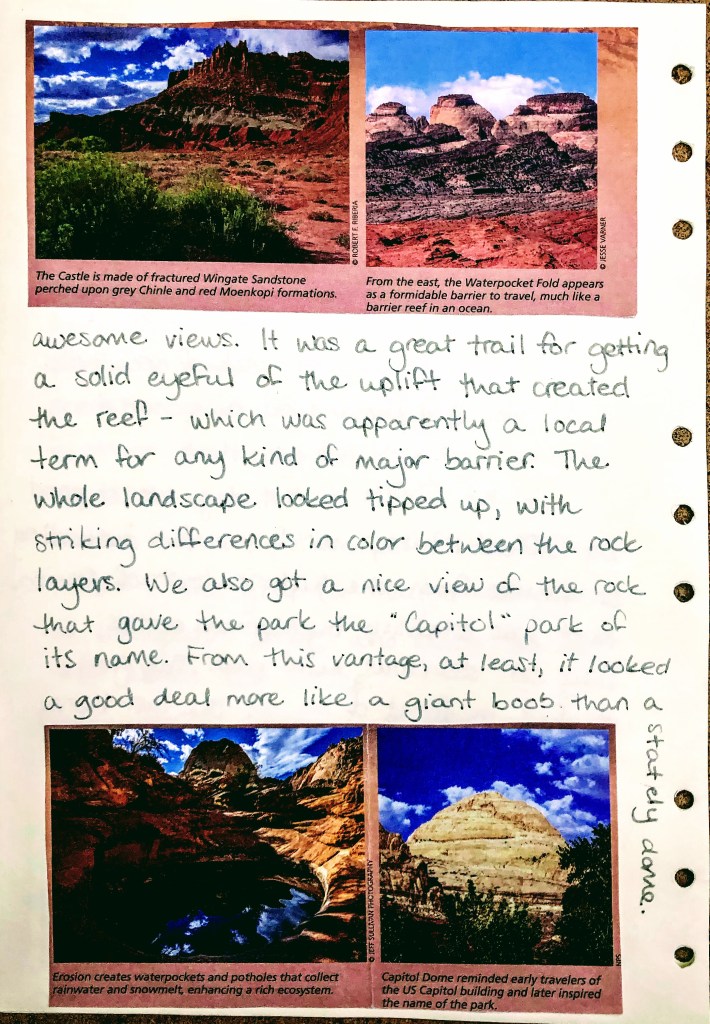 © ROBERT F. RIBERIA
The Castle is made of fractured Wingate Sandstone
perched upon grey Chinle and red Moenkopi formations.
© JESSE VARNER
From the east, the Waterpocket Fold appears
as a formidable barrier to travel, much like a
barrier reef in an ocean.
awesome views. It was a great trail for getting
a solid eyeful of the uplift that created
the reef - which was apparently a local
term for any kind of major barrier. The
whole landscape looked tipped up, with
striking differences in color between the rock
layers. We also got a nice view of the rock
that gave the park the "Capitol" park of
its name. From this vantage, at least, it looked
a good deal more like a giant boob than a
stately dome.
© JEFF SULLIVAN PHOTOGRAPHY
Erosion creates waterpockets and potholes that collect
rainwater and snowmelt, enhancing a rich ecosystem.
NPS
Capitol Dome reminded early travelers of
the US Capitol building and later inspired
the name of the park.